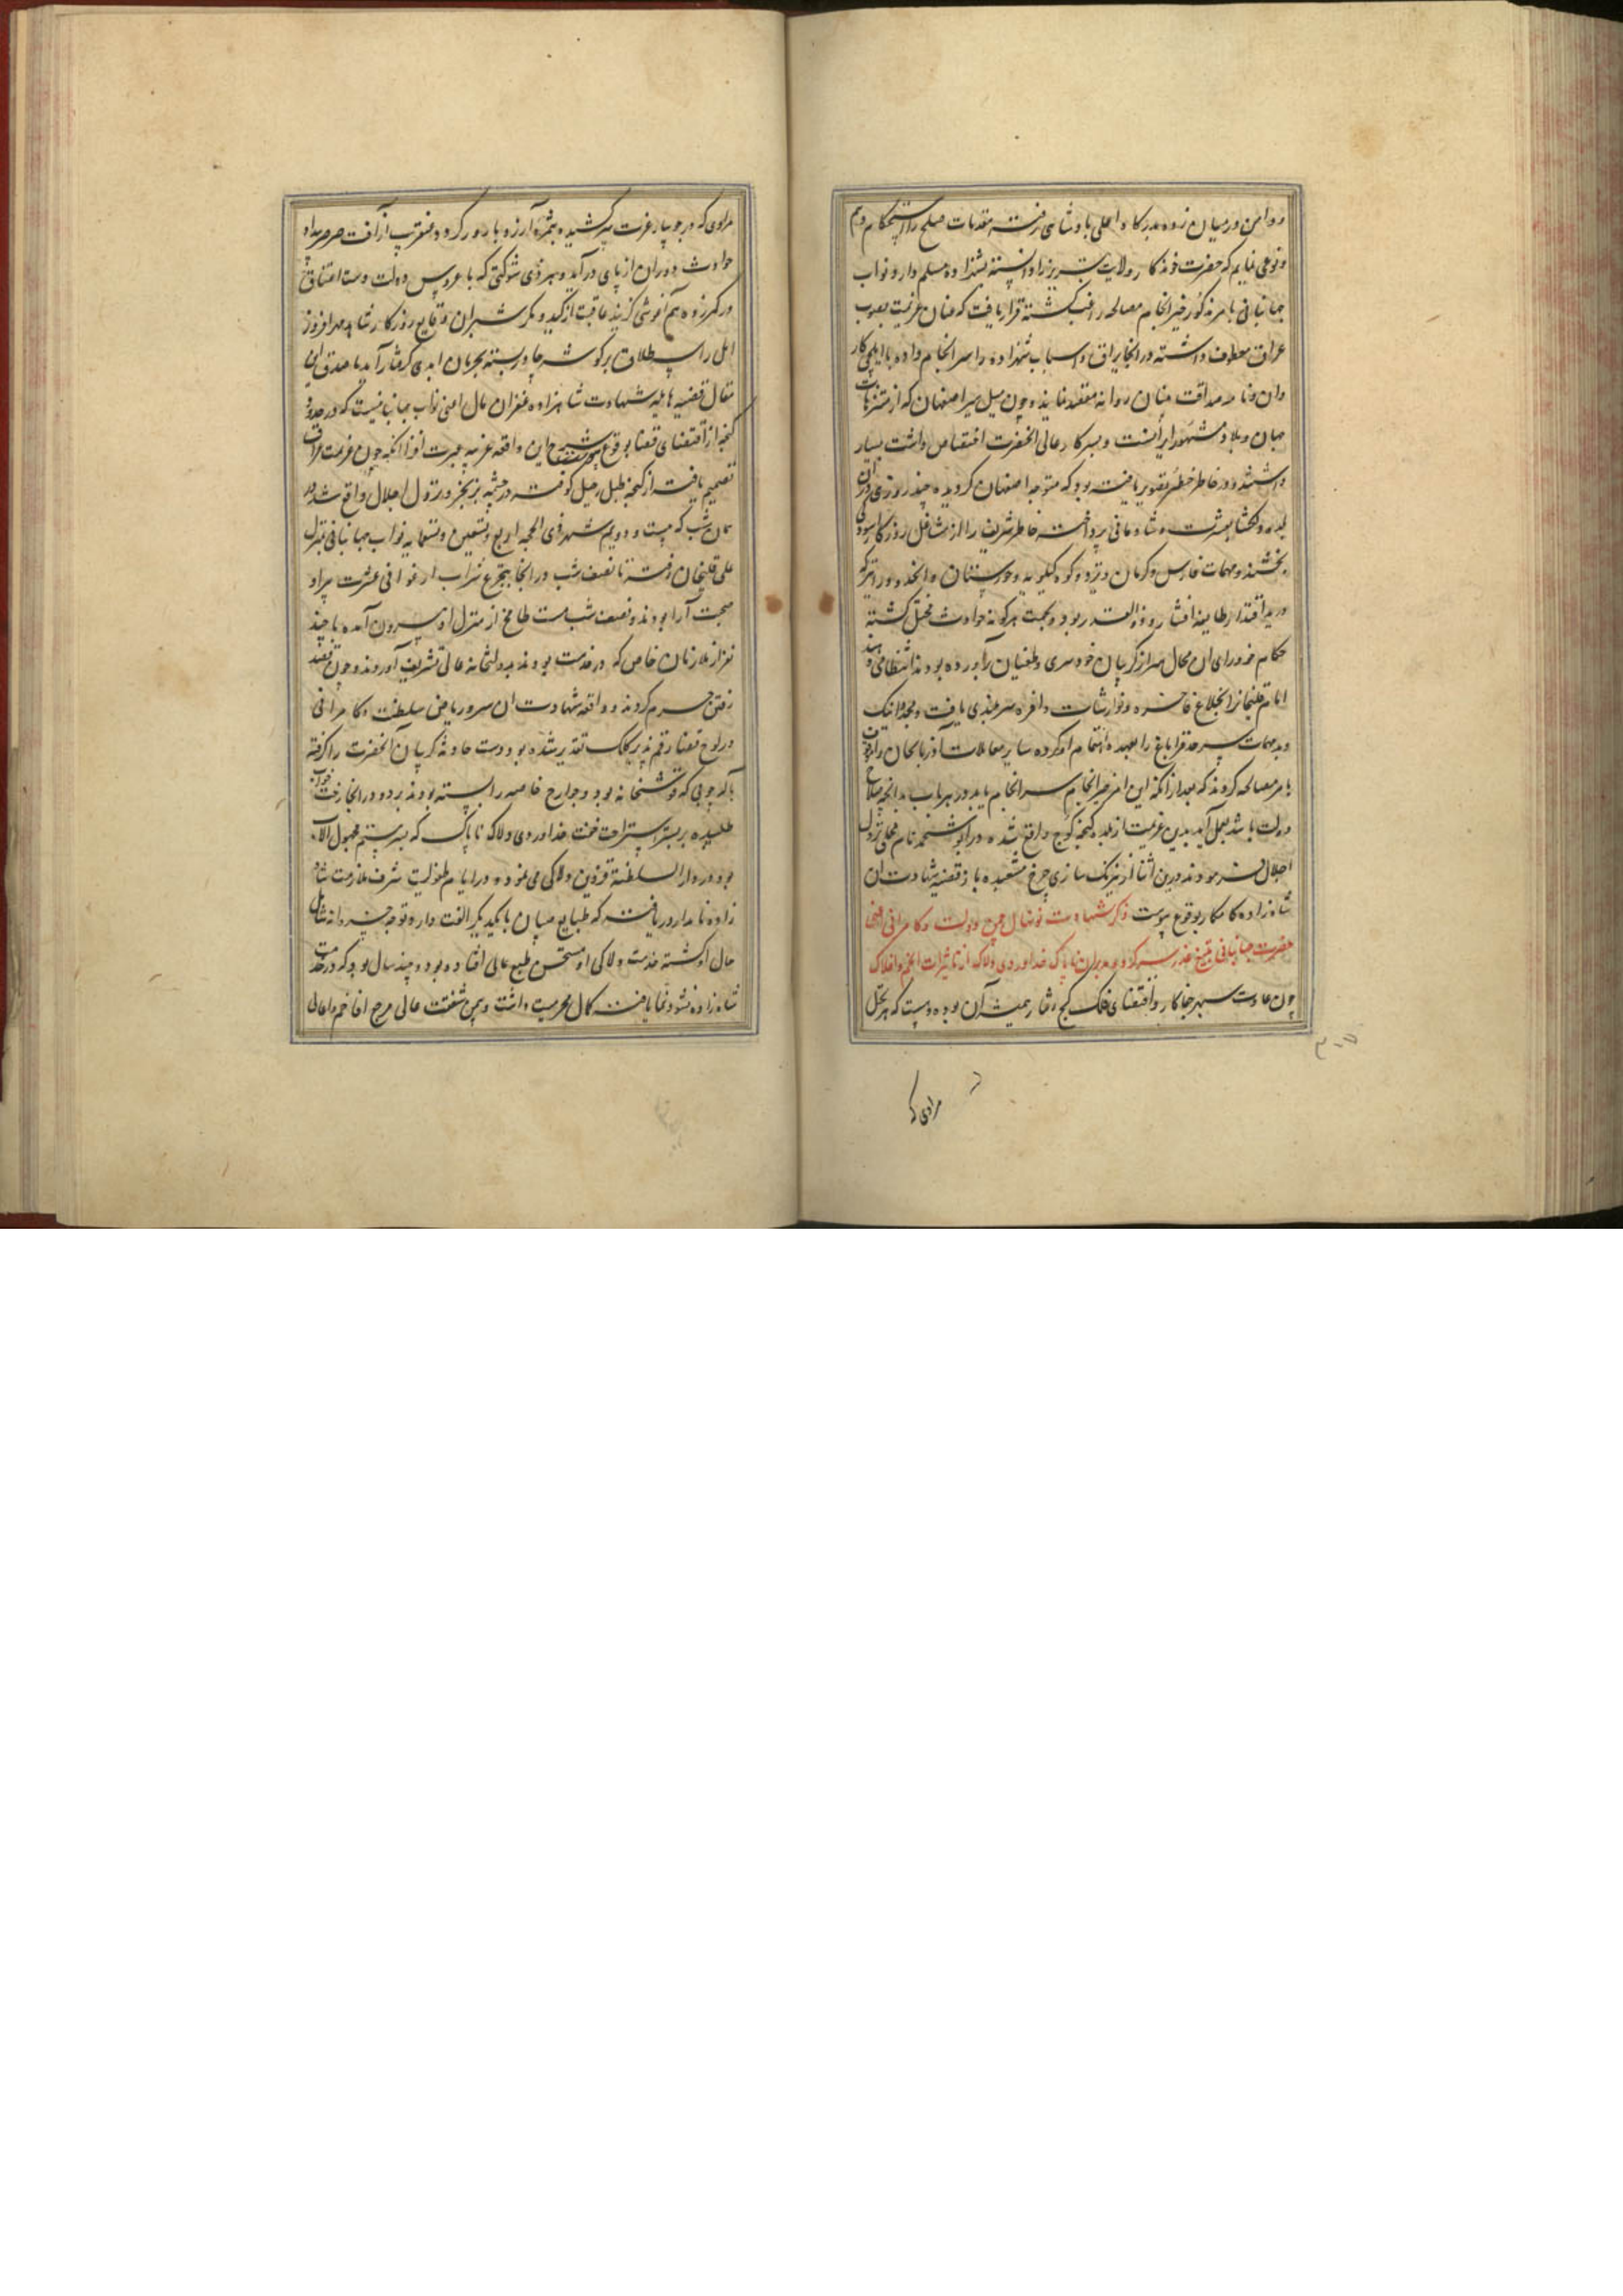 دامن در میان زده بدرکاه اعلی پادشاهی رفته مقدمات صلح را استحکام دهم
و نوعی نمایم که حضرت خوندکار ولایت تبریز را دانسته بشاهزاده مسلم دارد نواب
جهانبانی بامر مذکور خیر انجام مصالحه راغب کشته قرار یافت که عنان عزیمت بصوب
عراق معطوف داشته در انجا یراق و اسباب شهزاده را سرانجام داده با ایلچی کار
دان و نامه صداقت بنیان روانه نمایند و چون میل سیر اصفهان که از منتزهات
جهان و بلاد مشهور ایرانست و بسرکار عالی انحضرت اختصاص داشت بسیار
داشتند و در خاطر خطیر تصویر یافته بود که متوجه اصفهان کردیده چند روزی دران
بلده دلکشا بعشرت و شادمانی پرداخته خاطر شریف را از مشاغل روزکار آسودکی
بخشند و مهمات فارس و کرمان و یزد و کوه کیلویه و خوزستان و انحدود را که
در ید اقتدار طایفه افشار و ذو القدر بود و بجهت هرکونه حوادث مختل کشته
حکام خودرای ان محال سر از کریبان خودسری و طغیان برآورده بودند انتظامی دهند
امامقلیخان را بخلاع فاخره و نوازشات وافره سربلندی یافت
و مهمات سرحد قراباغ را بعهده اهتمام او کرده سایر معاملات آذربایجان را
بامر مصالحه کردند که بعد از انکه این امر خیر انجام سرانجام یابد در هر باب بدانچه صلاح
دولت باشد بعمل آید بدین عزیمت از بلده کنجه کوچ واقع شده در ابوشحمه نام محلی نزول
اجلال فرمودند درین اثنا از نیرنک سازی چرخ مشعبده باز قضیه شهادت ان
شاهزاده کامکار بوقوع پیوست ذکر شهادت نونهال چمن دولت و کامرانی یعنی
حضرت جهانبانی بتیغ غدر سرکرده مدبران ناپاک خداوردی دلاک از تاثیرات انجم و افلاک
چون عادت سپهر جفاکار و اقتضای فلک کج رفتار همیشه آن بوده و هست که هر نخل
مرادی که
مرادی که در جویبار عزت سرکشیده بثمره آرزو بارور کردد عنقریب از آفت صرصر
حوادث دوران از پای درآید و هر ذی شوکتی که با عروس دولت دست اعتناق
در کمر زده هم آغوشی کزیند عاقبت از کید و مکر
امل را طلاق بر کوشه چادر بسته بحرمان ابدی کرفتار آید مصدق این
مقال قضیه هایله شهادت شاهزاده غفران مآل اعنی نواب جهانبانیست که در حدود
کنجه از اقتضای قضا بوقوع پیوست شرح این واقعه غریبه عبرت افزا انکه چون عزیمت عراق
تصمیم یافت از کنجه طبل رحیل کوفته نزول اجلال واقع شد در
همان شب که بیست و دویم شهر ذی الحجه اربع و تسعین و تسعمایه نواب جهانبانی بمنزل
علی قلیخان رفته تا نصف شب در انجا بتجرع شراب ارغوانی عشرت
صحبت آرا بودند و نصف شب مست طافح از منزل او بیرون آمده با چند
نفر از ملازمان خاص که در خدمت بودند بدولتخانه عالی تشریف آوردند و چون قصد
رفتن حرم کردند و واقعه شهادت ان سرو ریاض سلطنت و کامرانی
در لوح قضا رقم پذیر کلک تقدیر شده بود دست حادثه کریبان انحضرت را کرفته
که قوشخانه بود و جوارح خاصه را بسته بودند برد و در انجا رخت خواب
طلبیده بر بستر استراحت خفت خداوردی دلاک ناپاک که پسر رستم مجهول الاب
بود و در دار السلطنة قزوین دلاکی می نمود و در ایام طفولیت شرف ملازمت شاه
زاده نامدار دریافته که طبایع صبیان با یکدیکر الفت دارد توجه خسروانه شامل
حال او کشته خدمت دلاکی او مستحسن طبع عالی افتاده بود و چند سال بود که در خدمت
شاهزاده نشو و نما یافته کمال محرمیت داشت و بیمن شفقت عالی مرجع افاخم و اعالی